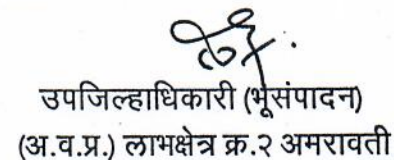 उपजिल्हाधिकारी (भूसंपादन)
(अ.व.प्र.) लाभक्षेत्र क्र.२ अमरावती